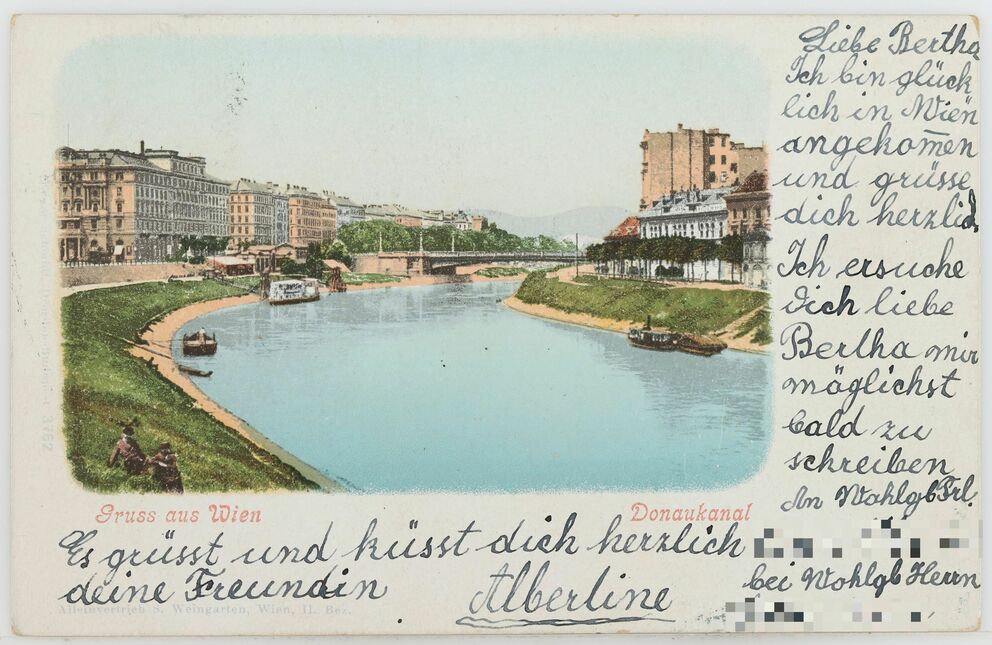 Liebe Bertha
Ich bin glück
lich in Wien
angekom̅en
und grüsse
dich herzlich
Ich ersuche
dich liebe
Bertha mir
möglichst
bald zu
schreiben
An Wohlgb Frl.
bei Wohlgb Herrn
Gruss aus Wien
Donaukanal
Es grüsst und küsst dich herzlich
deine Freundin Alberline
Alleinvertrieb S. Weingarten, Wien, II. Bez.
3762